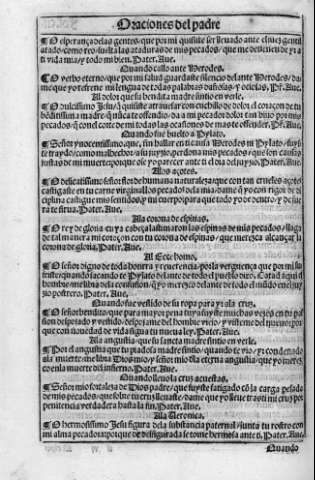 Oraciones del padre
¶ O esperança delas gentes, que por mi quisiste ser lleuado ante el juez
atado: como reo: suelta las ataduras de mis pecados, que me detienen de yr a
ti vida mia, y todo mi bien. Pater. Aue.
Quando callo ante Herodes.
¶ O verbo eterno, que por mi salud guardaste silencio delante Herodes, da
me que yo refrene mi lengua de todas palabras dañosas, y ociosas. Pr. Aue.
Al dolor que su bendita madre sintio en verle.
¶ O dulcissimo Jesu, que quisiste atrauesar con cuchillo de dolor el coraçon de tu
bēditissima madre que nūca te offendio: da a mi pecador dolor tan biuo por mis
pecados, que con el corte de mi todas las ocasiones de mas te offender. Pr. Aue.
Quando fue buelto a Pylato.
¶ Señor ynocentissimo, que, sin hallar en ti culpa Herodes ni Pylato, fuyste
traydo, como malhechor a su juyzio, perdona mis pecados que son causas
justas de mi muerte, porque ose yo parecer ante ti el dia del juyzio. Pater. Aue.
A los açotes.
¶ O delicatissimo señor flor de humana naturaleza, que con tan crueles açotes
castigaste en tu carne virginal los pecados dela mia dame que yo con rigor de
ciplina castigue mis sentidos, y mi cuerpo para que todo yo de dentro, y de fue
ra te sirua. Pater. Aue.
Ala corona de espinas.
¶ O rey de gloria cuya cabeça lastimaron las espinas de mis pecados, llaga
de tal manera mi coraçon con tu corona de espinas, que merezca alcançar la
corona de gloria. Pater. Aue.
Al Ecce homo.
¶ O señor digno de toda honrra y reuerencia por la verguença que por mi su
friste quando sacando te Pylato delante de todo el pueblo dixo. Catad aqui el
hombre me libra dela confusion, que yo merezco delante de todo el mūdo enel juy
zio postrero. Pater. Aue.
Quando fue vestido de su ropa para yr ala cruz.
¶ O señor bendito, que para mayor pena tuya fuyste muchas vezes en tu pas
sion despojado y vestido: despojame del hombre viejo, y visteme del nueuo: por
que con nouedad de vida siga tu nueua ley. Pater. Aue.
Ala angustia que su sancta madre sintio en verle.
¶ Por el angustia que tu piadosa madre sintio quando te vio, yr condenado
ala muerte me libra Dios mio, y señor mio dela eterna angustia, que yo merez
co en la muerte del infierno. Pater. Aue.
Quando lleuo la cruz acuestas.
¶ Señor mio fortaleza de Dios padre, que fuyste fatigado cō la carga pesada
de mis pecados: que sobre tu cruz lleuaste, dame que yo lleue tras ti mi cruz por
penitencia verdadera hasta la fin. Pater. Aue.
Ala Veronica.
¶ O hermosissimo Jesu figura dela substancia paternal, junta tu rostro con
mi alma pecadora porque de desfigurada se torne hermosa ante ti. Pater. Aue.
Quando